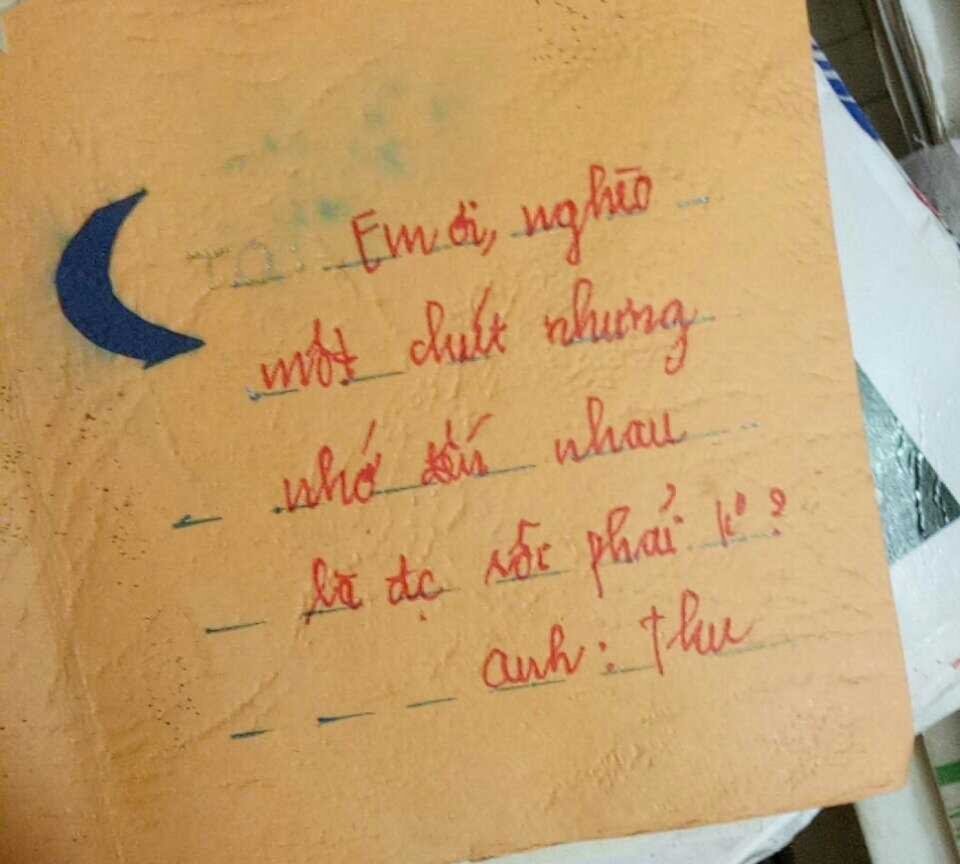 Em ơi, nghīo
một chút nhưng
nhớ đến nhau
là đc rồi phải k°?
anh: Thu